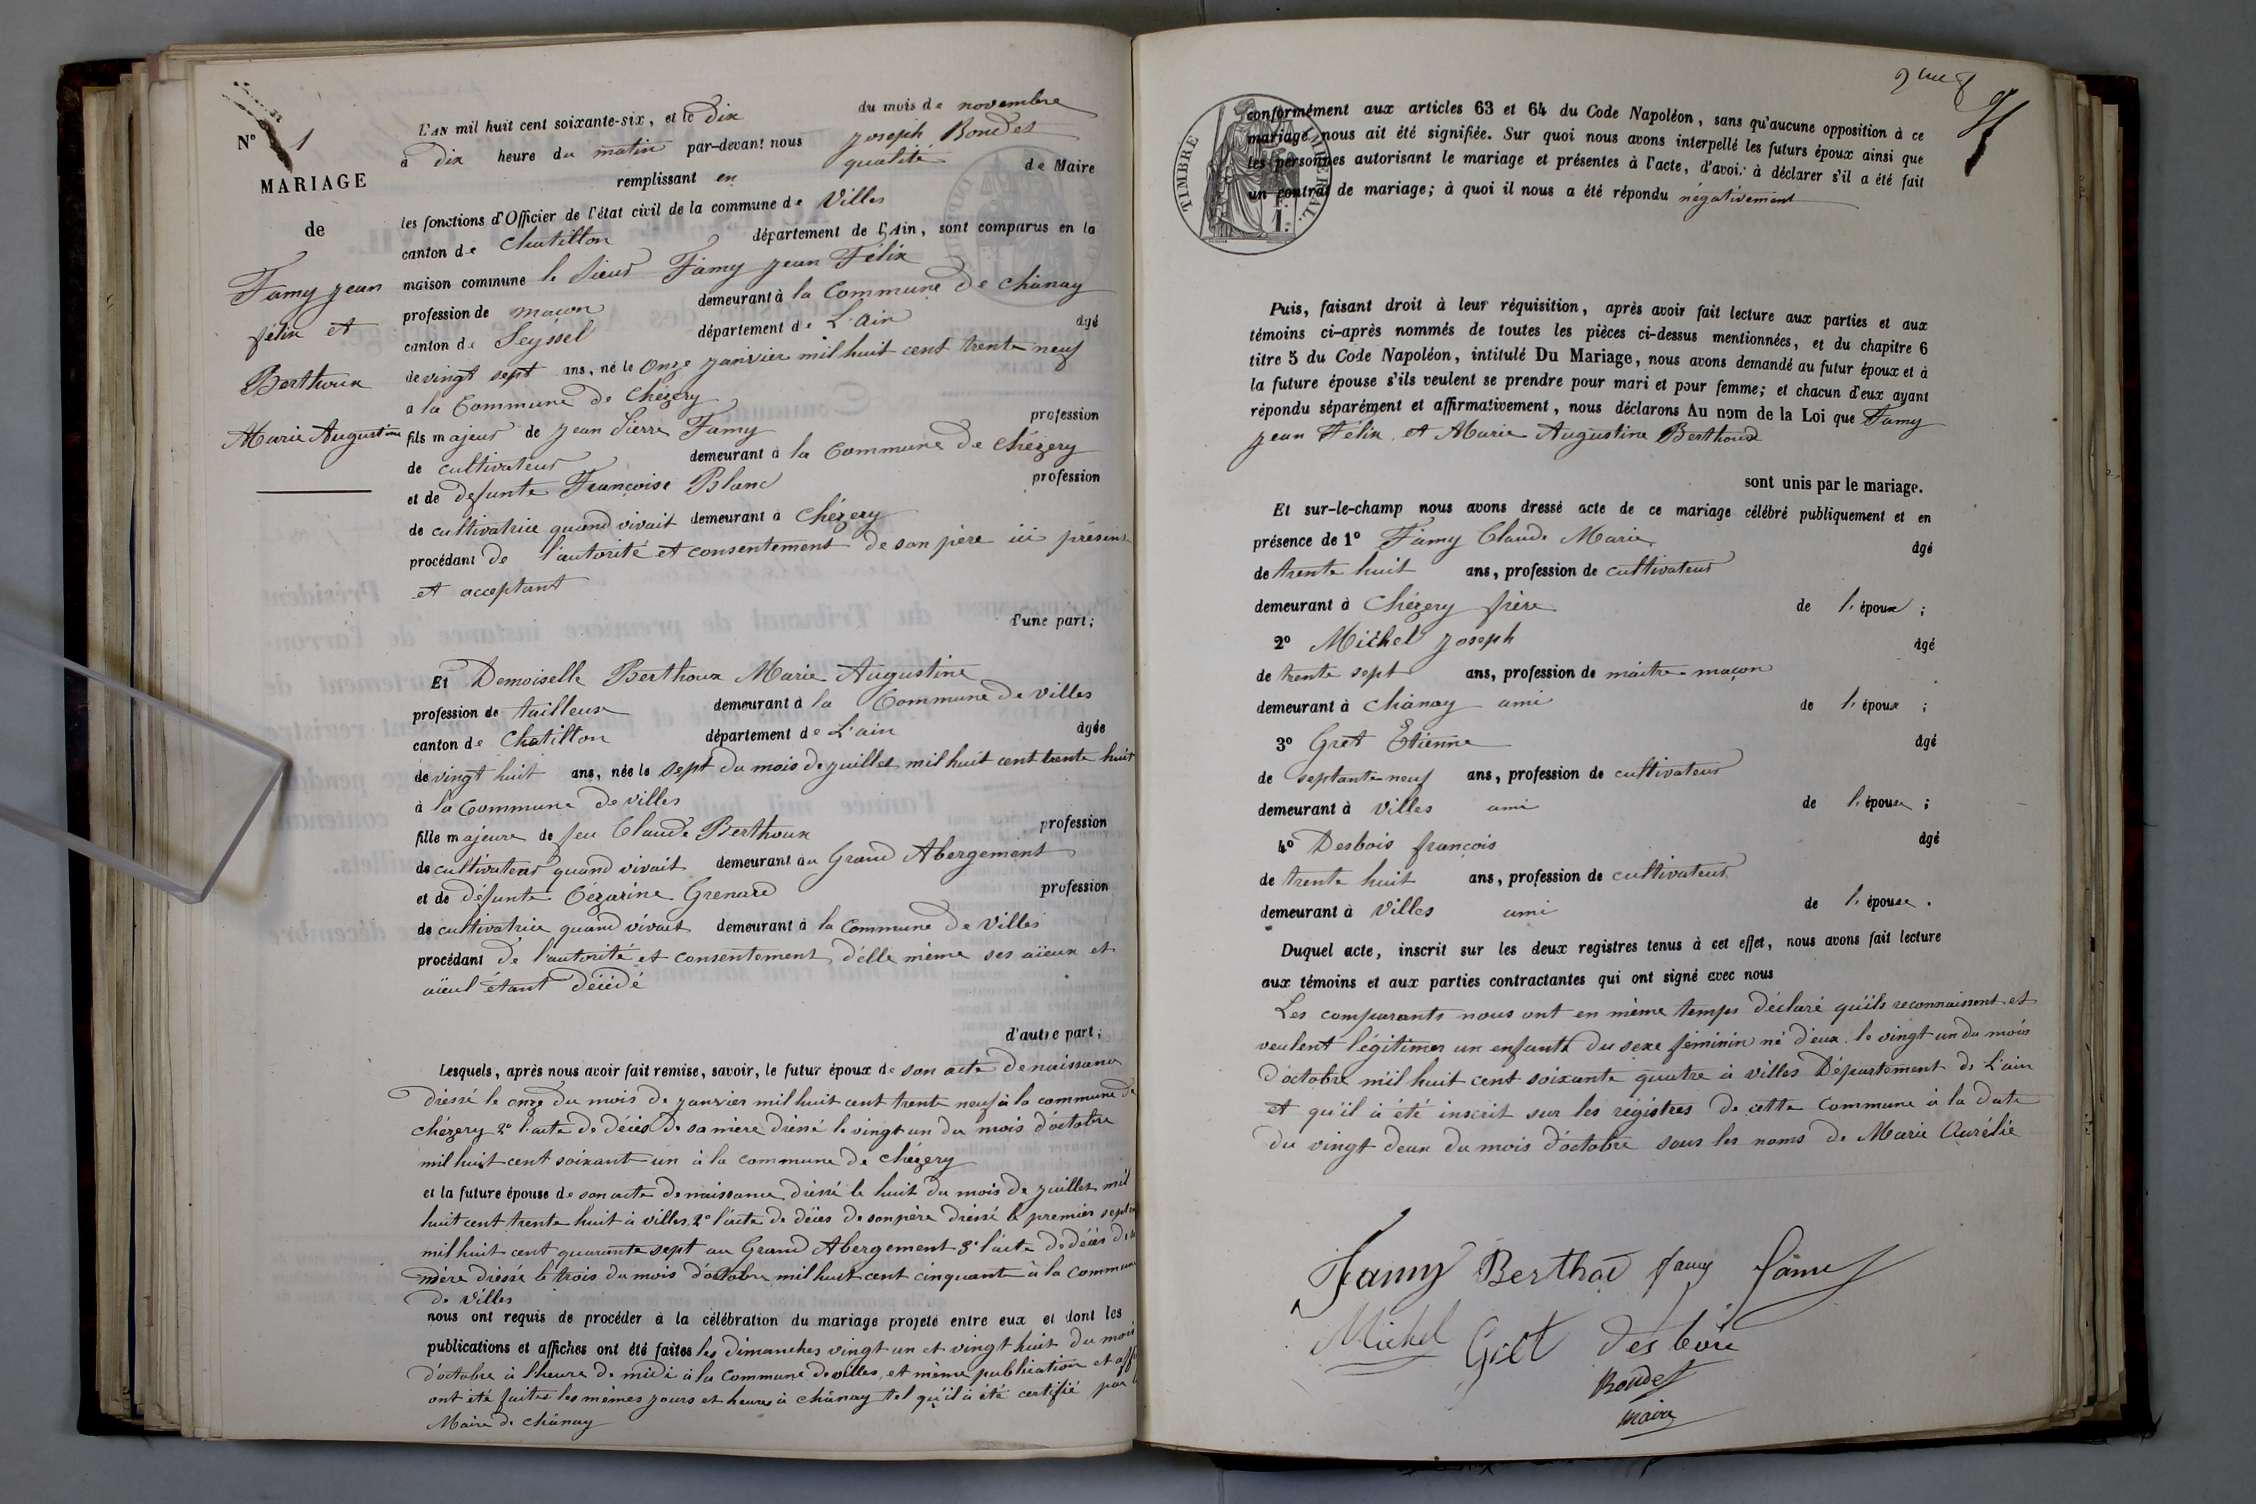 N° 1
MARIAGE
de
Famy jean
félix et
Berthoux
Marie Augustine
L'AN mil huit cent soixante-six, et le dix du mois de novembre
à dix heure du matin par-devant nous joseph Bondet
remplissant en qualité de Maire
les fonctions d'Officier de l'état civil de la commune de Villes
canton de Chatillon département de l'Ain, sont comparus en la
maison commune le sieur Famy jean Félix
profession de maçon demeurant à la Commune de chânay
canton de Seyssel département de L'ain âgé
de vingt sept ans, né le onze janvier mil huit cent trente neuf
a la Commune de Chézery
fils majeur de jean Pierre Famy profession
de cultivateur demeurant à la Commune de Chézery
et de défunte Françoise Blanc profession
de cultivatrice quand vivait demeurant à Chézery
procédant de l'autorité et consentement de son père ici présent
et acceptant
d'une part;
Et Demoiselle Berthoux Marie Augustine
profession de tailleuse demeurant à la Commune de villes
canton de Chatillon département de L'ain âgée
de vingt huit ans, née le sept du mois de juillet mil huit cent trente huit
à la Commune de villes
fille majeure de feu Claude Berthoux profession
de cultivateur quand vivait demeurant au Grand Abergement
et de défunte Cézarine Grenard profession
de cultivatrice quand vivait demeurant à la Commune de Villes
procédant de l'autorité et consentement d'elle même ses aïeux et
aïeul étant décédé
d'autre part;
Lesquels, après nous avoir fait remise, savoir, le futur époux de son acte de naissance
dressé le onze du mois de janvier mil huit cent trente neuf à la commune de
chézery 2° l'acte de décès de sa mère dressé le vingt un du mois d'octobre
mil huit cent soixant un à la commune de chézery
et la future épouse de son acte de naissance dressé le huit du mois de juillet mil
huit cent trente huit à villes, 2° l'acte de décès de son père dressé le premier
mil huit cent quarante sept au Grand Abergement 3° l'acte de décès de
mère dressé le trois du mois d'octobre mil huit cent cinquante à la Commune
de Villes
nous ont requis de procéder à la célébration du mariage projeté entre eux et dont les
publications et affiches ont été faites les dimanches vingt un et vingt huit du mois
d'octobre à l'heure de midi à la Commune de villes, et même publication et
ont été faites les mêmes jours et heures à chânay tel qu'il à été certifié par
Maire de chânay
TIMBRE IMPÉRIAL.
conformément aux articles 63 et 64 du Code Napoléon, sans qu'aucune opposition à ce
mariage nous ait été signifiée. Sur quoi nous avons interpellé les futurs époux ainsi que
les personnes autorisant le mariage et présentes à l'acte, d'avoir à déclarer s'il a été fait
un contrat de mariage; à quoi il nous a été répondu négativement
Puis, faisant droit à leur réquisition, après avoir fait lecture aux parties et aux
témoins ci-après nommés de toutes les pièces ci-dessus mentionnées, et du chapitre 6
titre 5 du Code Napoléon, intitulé Du Mariage, nous avons demandé au futur époux et à
la future épouse s'ils veulent se prendre pour mari et pour femme; et chacun d'eux ayant
répondu séparément et affirmativement, nous déclarons Au nom de la Loi que Famy
jean Félix, et Marie Augustine Berthoux
sont unis par le mariage.
Et sur-le-champ nous avons dressé acte de ce mariage célébré publiquement et en
présence de 1° Famy Claude Marie âgé
de trente huit ans, profession de cultivateur
demeurant à Chézery frère de l'époux;
2° Michel joseph âgé
de trente sept ans, profession de maitre maçon
demeurant à chânay ami de l'époux;
3° Gret Etienne âgé
de septante neuf ans, profession de cultivateur
demeurant à villes ami de l'épouse;
4° Desbois françois âgé
de trente huit ans, profession de cultivateur
demeurant à Villes ami de l'épouse.
Duquel acte, inscrit sur les deux registres tenus à cet effet, nous avons fait lecture
aux témoins et aux parties contractantes qui ont signé avec nous
Les comparants nous ont en même temps déclaré qu'ils reconnaissent et
veulent légitimer un enfants du sexe féminin né d'eux le vingt un du mois
d'octobre mil huit cent soixante quatre à villes Département de L'ain
et qu'il à été inscrit sur les régistres de cette Commune à la date
du vingt deux du mois d'octobre sous les noms de Marie Aurélie
Famy Berthoz famy fâmy
Michel Grét desbois
Bondet
maire